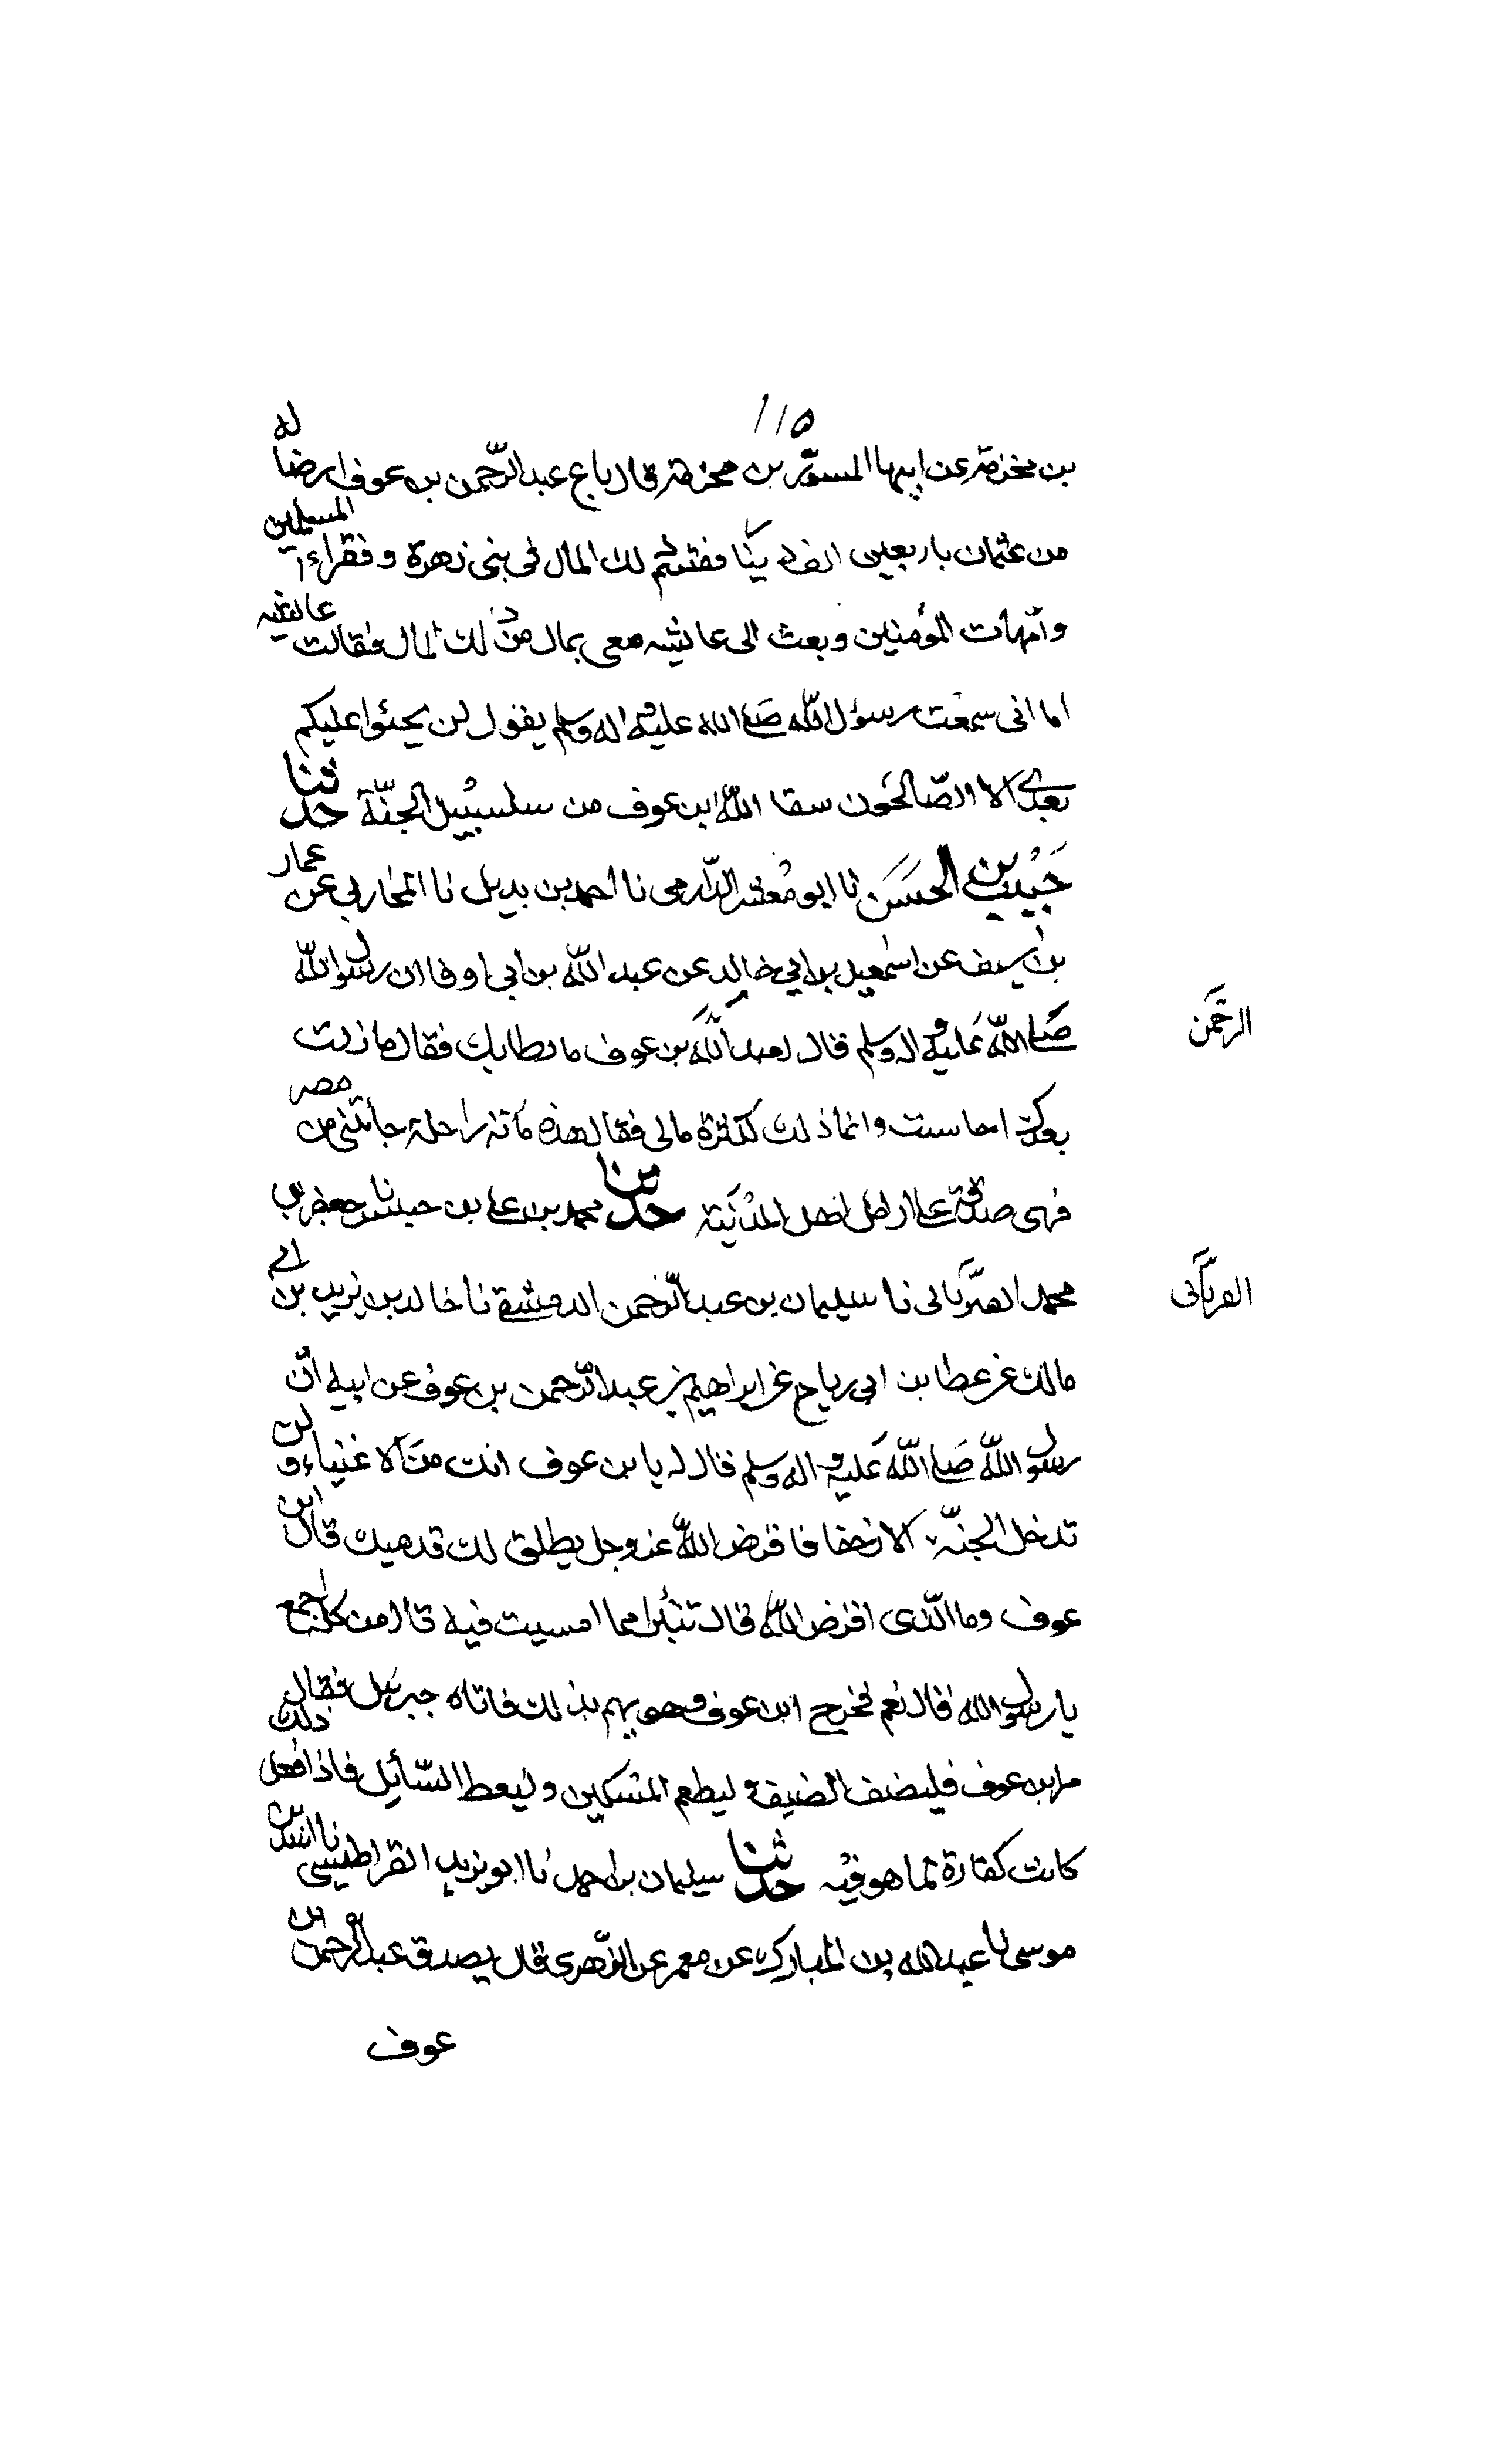 ١١٥
بن مخرمة عن ابيها المسور بن مخرمة قال باع عبد الرّحمن بن عوف ارضا له
من عثمان باربعين الف دينا فقسم ذلك المال فى بنى زهرة وفقراء المسلمين
وامّهات المؤمنين وبعث الى عائشه معى بمال من ذلك المال فقالت عائشه
اما انى سمعت رسول اللّه صلى الله عليه واله وسلم يقول لن يحنوا عليكم
بعدى الا الصّالحون سقا اللّه ابن عوف من سلسبيل الجنّة حدثنا
حبيب بن الحسن نا ابو معشر الدّارمى نا احمد بن بديل نا المحاربى عن عمار
بن سيف عن اسمعيل بن ابي خالد عن عبد اللّه بن ابى اوفا ان رسول اللّه
صلى اللّه عليه واله وسلم قال لعبد اللّه بن عوف ما بطا بك فقال ما زلت
الرحمن
بعدك احاسب وانما ذلك لكثرة مالى فقال هذه مائة راحلة جائتنى من مصر
فهى صدقة على ارامل اهل المدينة حدثنا محمد بن على بن حبيش نا جعفر بن
محمد الفريابى نا سليمان بن عبد الرّحمن الدمشقى نا خالد بن يزيد بن ابى
الفريابى
مالك عن عطا بن ابى رباح عن ابراهيم بن عبد الرّحمن بن عوف عن ابيه انّ
رسول اللّه صلى اللّه عليه واله وسلم قال له يا بن عوف انت من الاغنياء ولن
تدخل الجنّة الا زحفا فاقرض اللّه عز وجل يطلق لك قدميك قال ابن
عوف وما الّذى اقرض اللّه قال تتبرا مما امسيت فيه قال من كله اجمع
يا رسول الله قال نعم فخرج ابن عوف وهو يهم بذلك فاتاه جبرئيل فقال
مر ابن عوف فليضف الضيف وليطعم المسكين وليعط السّائل فاذا فعل ذلك
كانت كفارة لما هو فيه حدثنا سليمان بن احمد نا ابو يزيد القراطيسى نا اسد بن
موسى نا عبد الله بن المبارك عن معمر عن الزّهرى قال يصدق عبد الرحمن بن
عوف